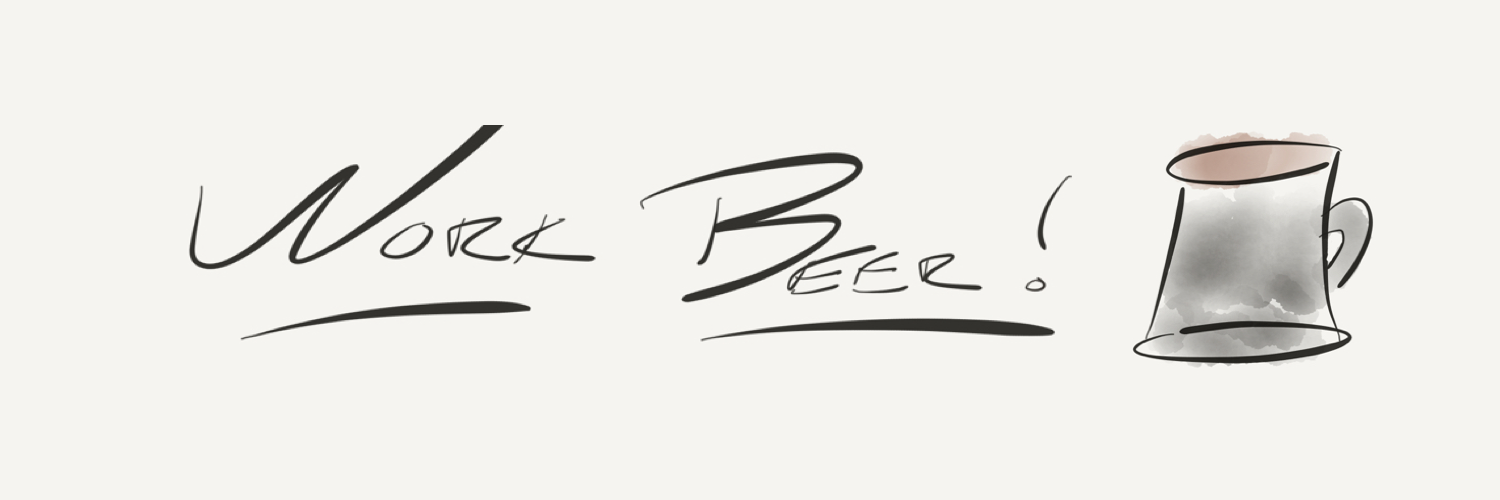 Work Beer!